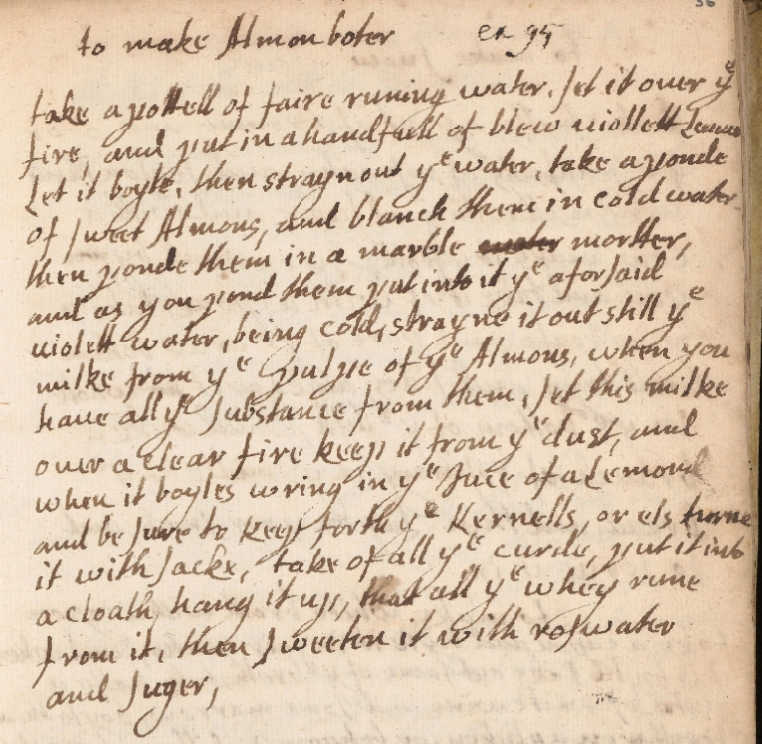 36
to make Almon boter ex 95
take a pottell of faire runing water, set it over yᵉ
fire, and put in a handfull of blew uiollett Leaues
Let it boyle, then strayn out yᵉ water, take a ponde
of sweet Almons, and blanch them in cold water
then ponde them in a marble mortter,
and as you pond them put into it yᵉ aforsaid
uiolett water, being cold, strayne it out still yᵉ
milke from yᵉ pulpe of yᵉ Almons, when you
haue all yᵉ substance from them, set this milke
ouer a clear fire keep it from yᵉ dust, and
when it boyles wring in yᵉ Juce of a Lemond
and be sure to keep forth yᵉ Kernells, or els turne
it with sacke, take of all yᵉ curde, put it into
a cloath, hang it up, that all yᵉ whey rune
from it, then sweeten it with roswater
and suger,